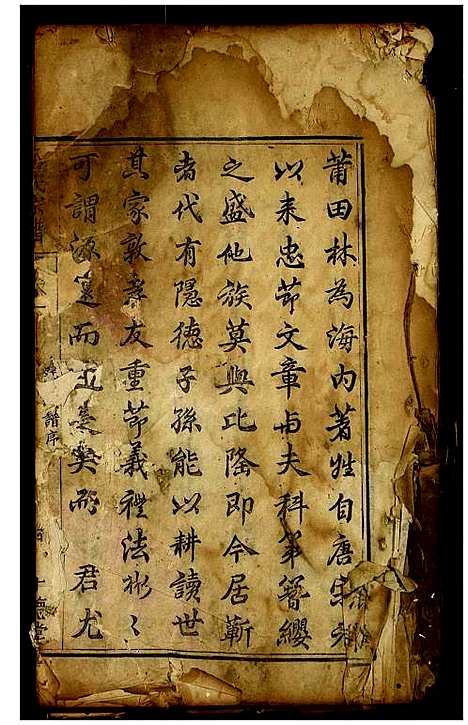 莆田林為海内著姓自唐宋
以來忠節文章與夫科第簪纓
之盛他族莫與比隆即今居蘄
者代有隱德子孫能以耕讀世
其家敦孝友重節義禮法彬〻
可謂源遠而流長矣而 君尤
譜序
德堂